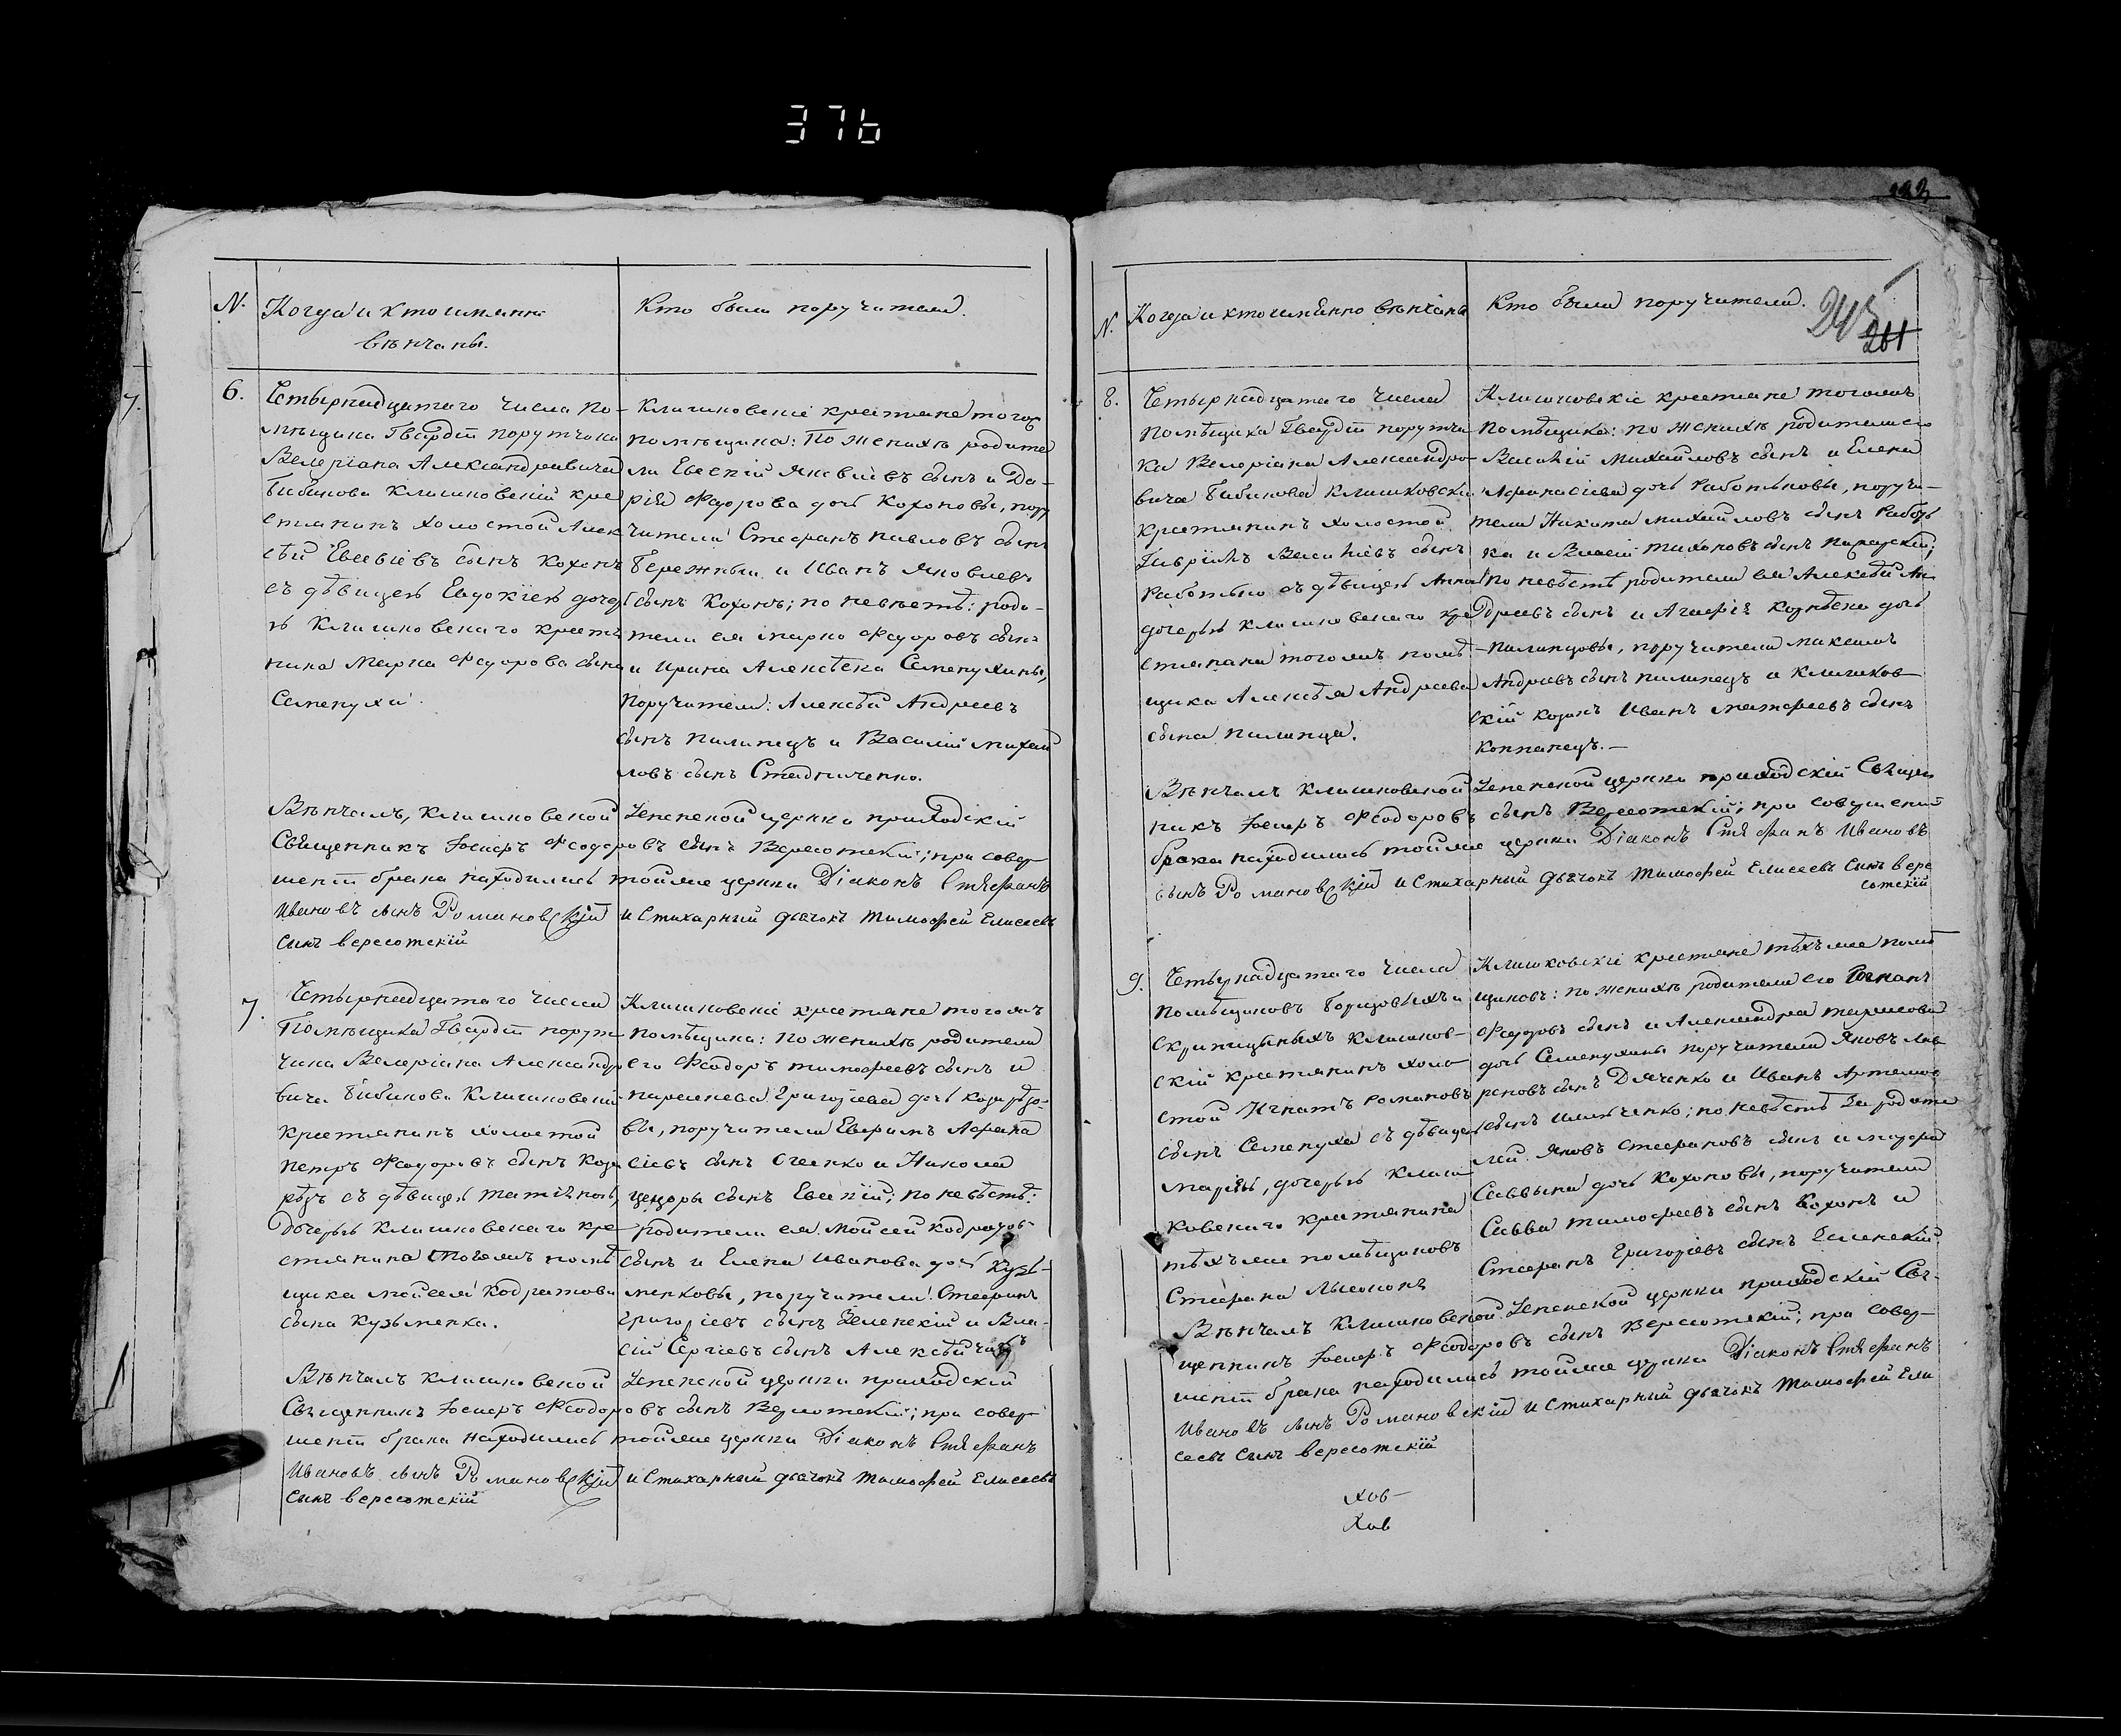 376
N. Когда и кто имянно
вѣнчаны.
Кто были поручители.
6. Четырнадцатаго числа по-
мѣщика Гвардіи порутчика
Велеріана Александровича
Бибикова Клишковскій кре
стянинъ холостой Алек
сѣй Евсевіевъ сынъ Кохонъ
съ дѣвицею Евдокіею дочер
ю Клишковскаго крестя
нина Марка Федорова сына
Семенухи.
Клишковскіе крестяне тогож
помѣщика: По женихѣ родите
ли Евсевій Яковлевъ сынъ и Да-
рія Федорова дочь Кохоновы, пору
чители Стефанъ Павловъ сынъ
Бережный и Иванъ Яковлевъ
сынъ Кохонъ; по невѣстѣ: роди-
тели ея Марко Федоровъ сынъ
и Ирина Алексѣева Семенухины,
Поручители: Алексѣй Андреевъ
сынъ Пилипецъ и Василій Михай
ловъ сынъ Стадниченко.
Вѣнчалъ, Клишковской Успенской церкви приходскій
Священникъ Іосифъ Феодоровъ сынъ Вересотскій; при совер-
шеніи брака находились тойже церкви Діаконъ Стефанъ
Ивановъ сынъ Романовскій и Стихарный дьячокъ Тимофей Елисеевъ
сынъ Вересотскій
7. Четырнадцатаго числа
Помѣщика Гвардіи порут-
чика Велеріана Александро
вича Бибикова Клишковскій
крестянинъ холостой
Петръ Феодоровъ сынъ Кози
рѣзъ съ дѣвицею Татіаною,
Дочерью Клишковскаго кре
стянина тогожъ помѣ
щика Мойсея Кодратова
сына Кузьменка.
Клишковскіе крестяне тогожъ
помѣщика: По женихѣ родители
его Феодоръ Тимофеевъ сынъ и
Параскева Григоріева дочь Козирѣзо-
вы, поручители Ефримъ Афана
сіевъ сынъ и Николай
сынъ; по невѣстѣ:
родители ея Мойсей Кодратов
сынъ и Елена Иванова дочь Кузь-
менковы, поручители: Стефанъ
Григоріевъ сынъ Зеленскій и Вла-
сій Сергіевъ сынъ
Вѣнчалъ Клишковской Успенской церкви приходскій
Священникъ Іосифъ Феодоровъ сынъ Вересотскій; при совер-
шеніи брака находились тойже церкви Діаконъ Стефанъ
Ивановъ сынъ Романовскій и Стихарный дьячокъ Тимофей Елисеевъ
сынъ Вересотскій
N. Когда и кто имянно вѣнчаны
Кто были поручители.
261
8. Четырнадцатаго числа
Помѣщика Гвардіи порутчи
ка Велеріана Александро-
вича Бибикова Клишковскій
Крестянинъ холостой
Гавріилъ Василіевъ сынъ
Работько съ дѣвицею Анною
дочерью Клишковскаго кре
стянина тогожъ помѣ-
щика Алексѣя Андреева
сына Пилипца.
Клишковскіе крестяне тогожъ
Помѣщика: по женихѣ родители его
Василій Михайловъ сынъ и Елена
Афанасіева дочь Работьковы, поручи-
тели Никита Михайловъ сынъ Работь
ка и Власій Тихоновъ сынъ;
по невѣстѣ родители ея Алексѣй Ан
дреевъ сынъ и Агафія дочь
Пилипцовы, поручители Максимъ
Андреевъ сынъ Пилипецъ и Клишков-
скій козакъ Иванъ Матфеевъ сынъ
Коппанецъ.-
Вѣнчалъ Клишковской Успенской церкви приходскій Священ
никъ Іосифъ Феодоровъ сынъ Вересотскій; при совершеніи
брака находились тойже церкви Діаконъ Стефанъ Ивановъ
сынъ Романовскій и Стихарный дьячокъ Тимофей Елисеевъ сынъ Вере
сотскій
9. Четырнадцатаго числа
Помѣщиковъ и
Скрипицыныхъ Клишков-
скій крестянинъ холо
стой Игнатъ Романовъ
сынъ Семенуха съ дѣвицею
Маріею, дочерью Клиш
ковскаго крестянина
тѣхъже помѣщиковъ
Стефана
Клишковскіе крестяне тѣхъже помѣ
щиковъ: по женихѣ родители его Романъ
Федоровъ сынъ и Александра Тарасова
дочь Семенухины поручители Яковъ Лав
реновъ сынъ Дяченко и Иванъ Артемов
сынъ; по невѣстѣ Ея родите
лей Яковъ Стефановъ сынъ и
Саввына дочь Кохоновы, поручители
Савва Тимофеевъ сынъ Кохонъ и
Стефанъ Григоріевъ сынъ Зеленскій.
Вѣнчалъ Клишковской Успенской церкви приходскій Свя-
щенникъ Іосифъ Феодоровъ сынъ Вересотскій; при совер-
шеніи брака находились тойже церкви Діаконъ Стефанъ
Ивановъ сынъ Романовскій и Стихарный дьячокъ Тимофей Ели
сеевъ сынъ Вересотскій
хов-
Хов